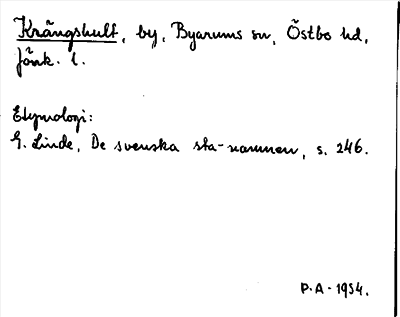 Krängshult, by, Byarums sn, Östbo hd,
Jönk. l.
Etymologi:
G. Linde, De svenska sta-namnen, s. 246.
P.A. 1954.